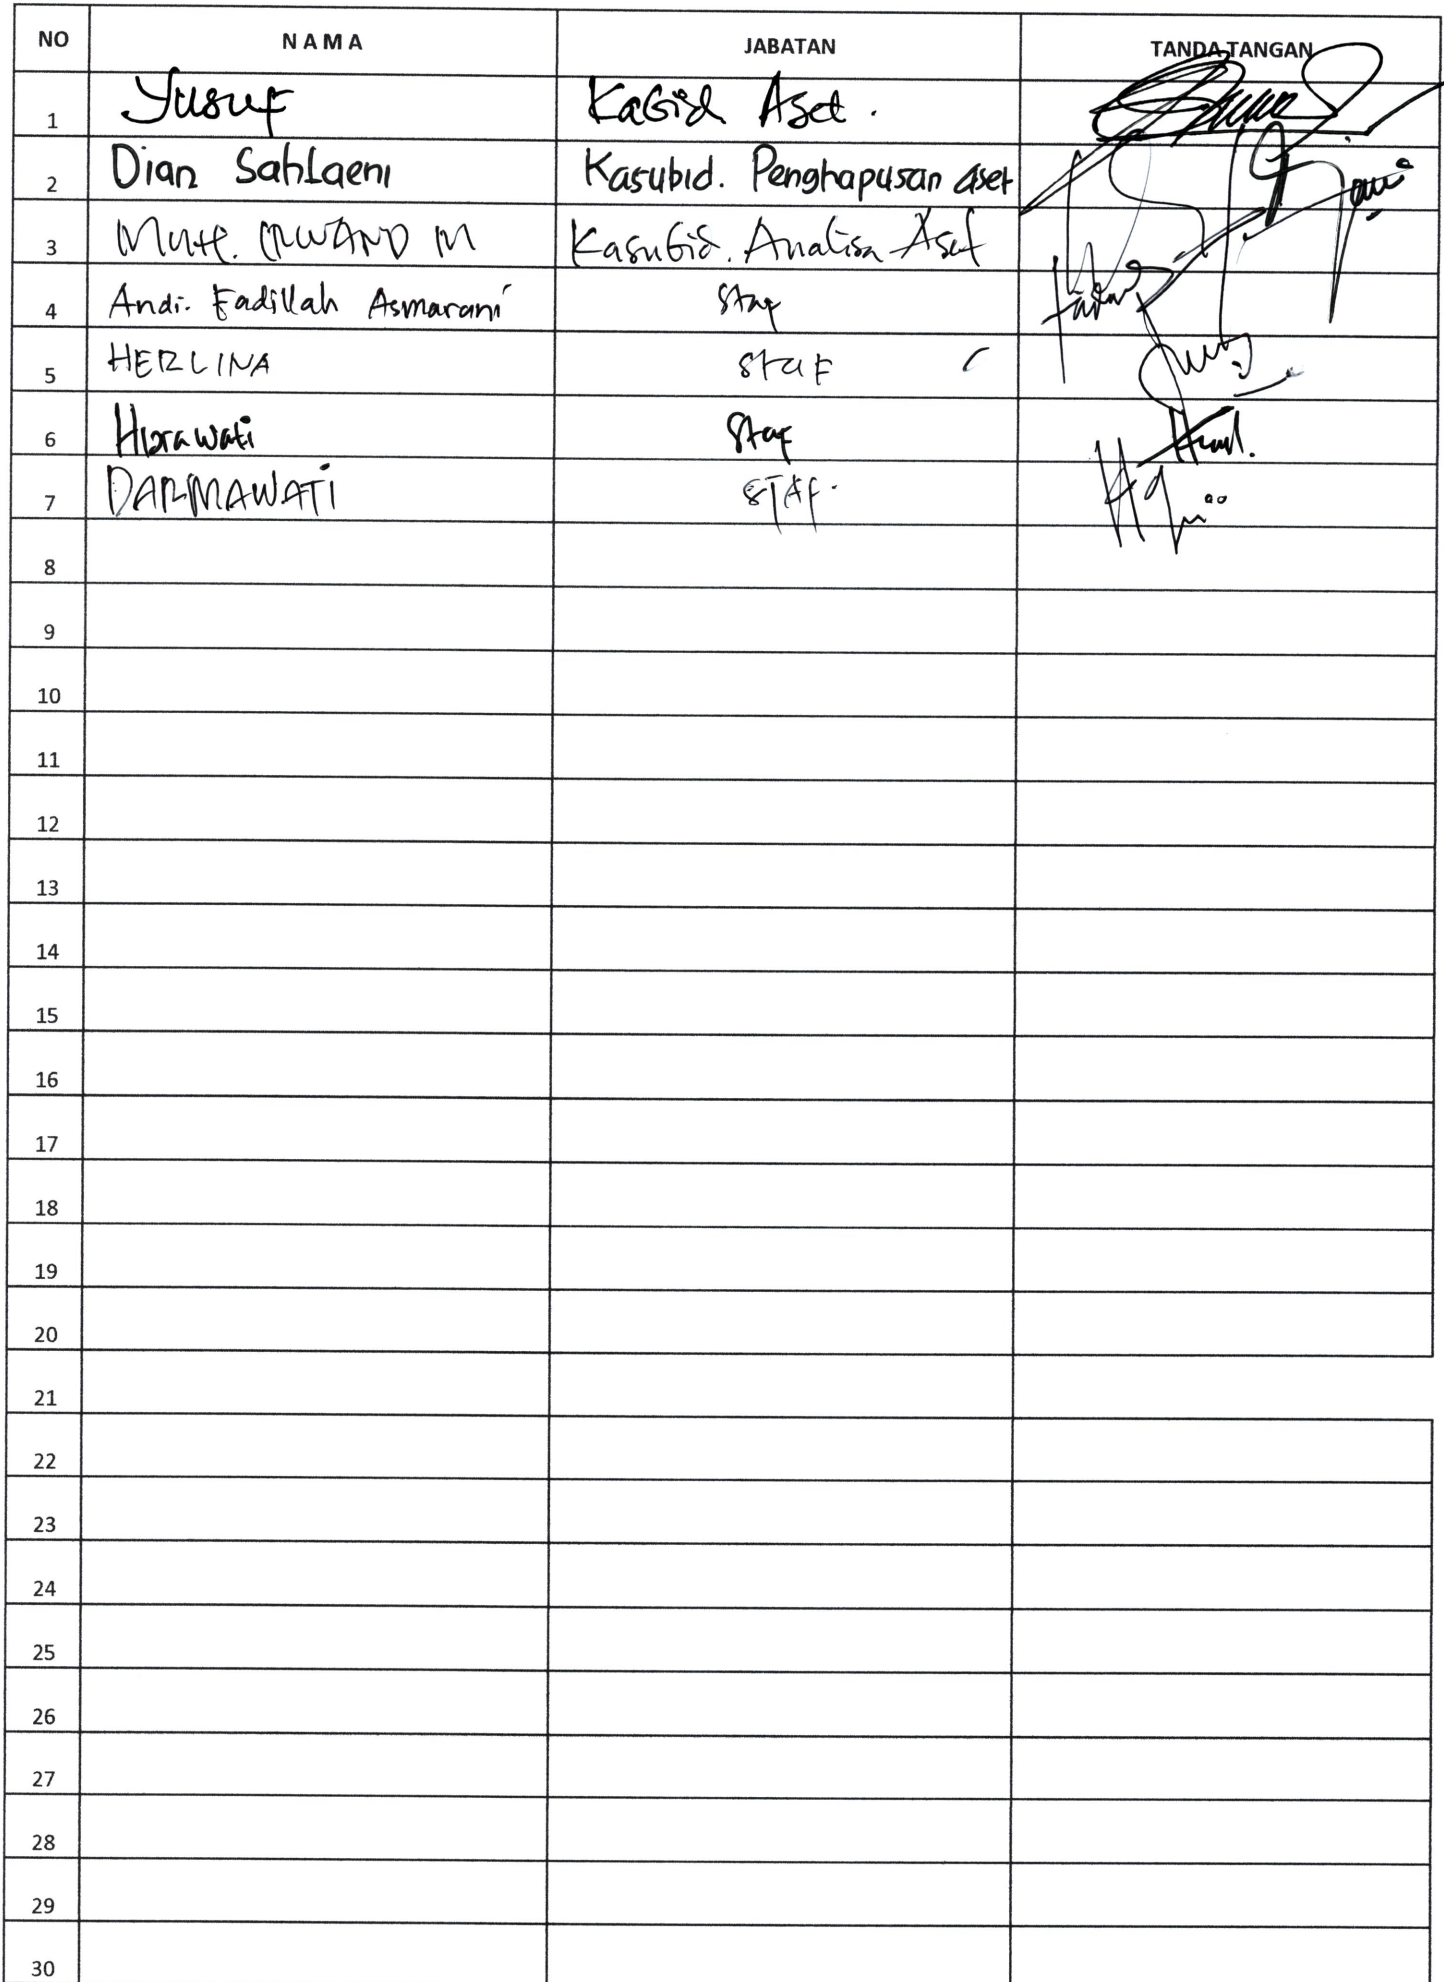 NO NAMA JABATAN TANDA TANGAN
1 Yusuf Kabid Aset.
2 Dian Sahlaeni Kasubid. Penghapusan Aset
3 Muh. IRWAND M Kasubid. Analisa Aset
4 Andi. Fadillah Asmarani Staf
5 HERLINA STAF
6 Hisrawati Staf
7 DARMAWATI STAF.
8
9
10
11
12
13
14
15
16
17
18
19
20
21
22
23
24
25
26
27
28
29
30